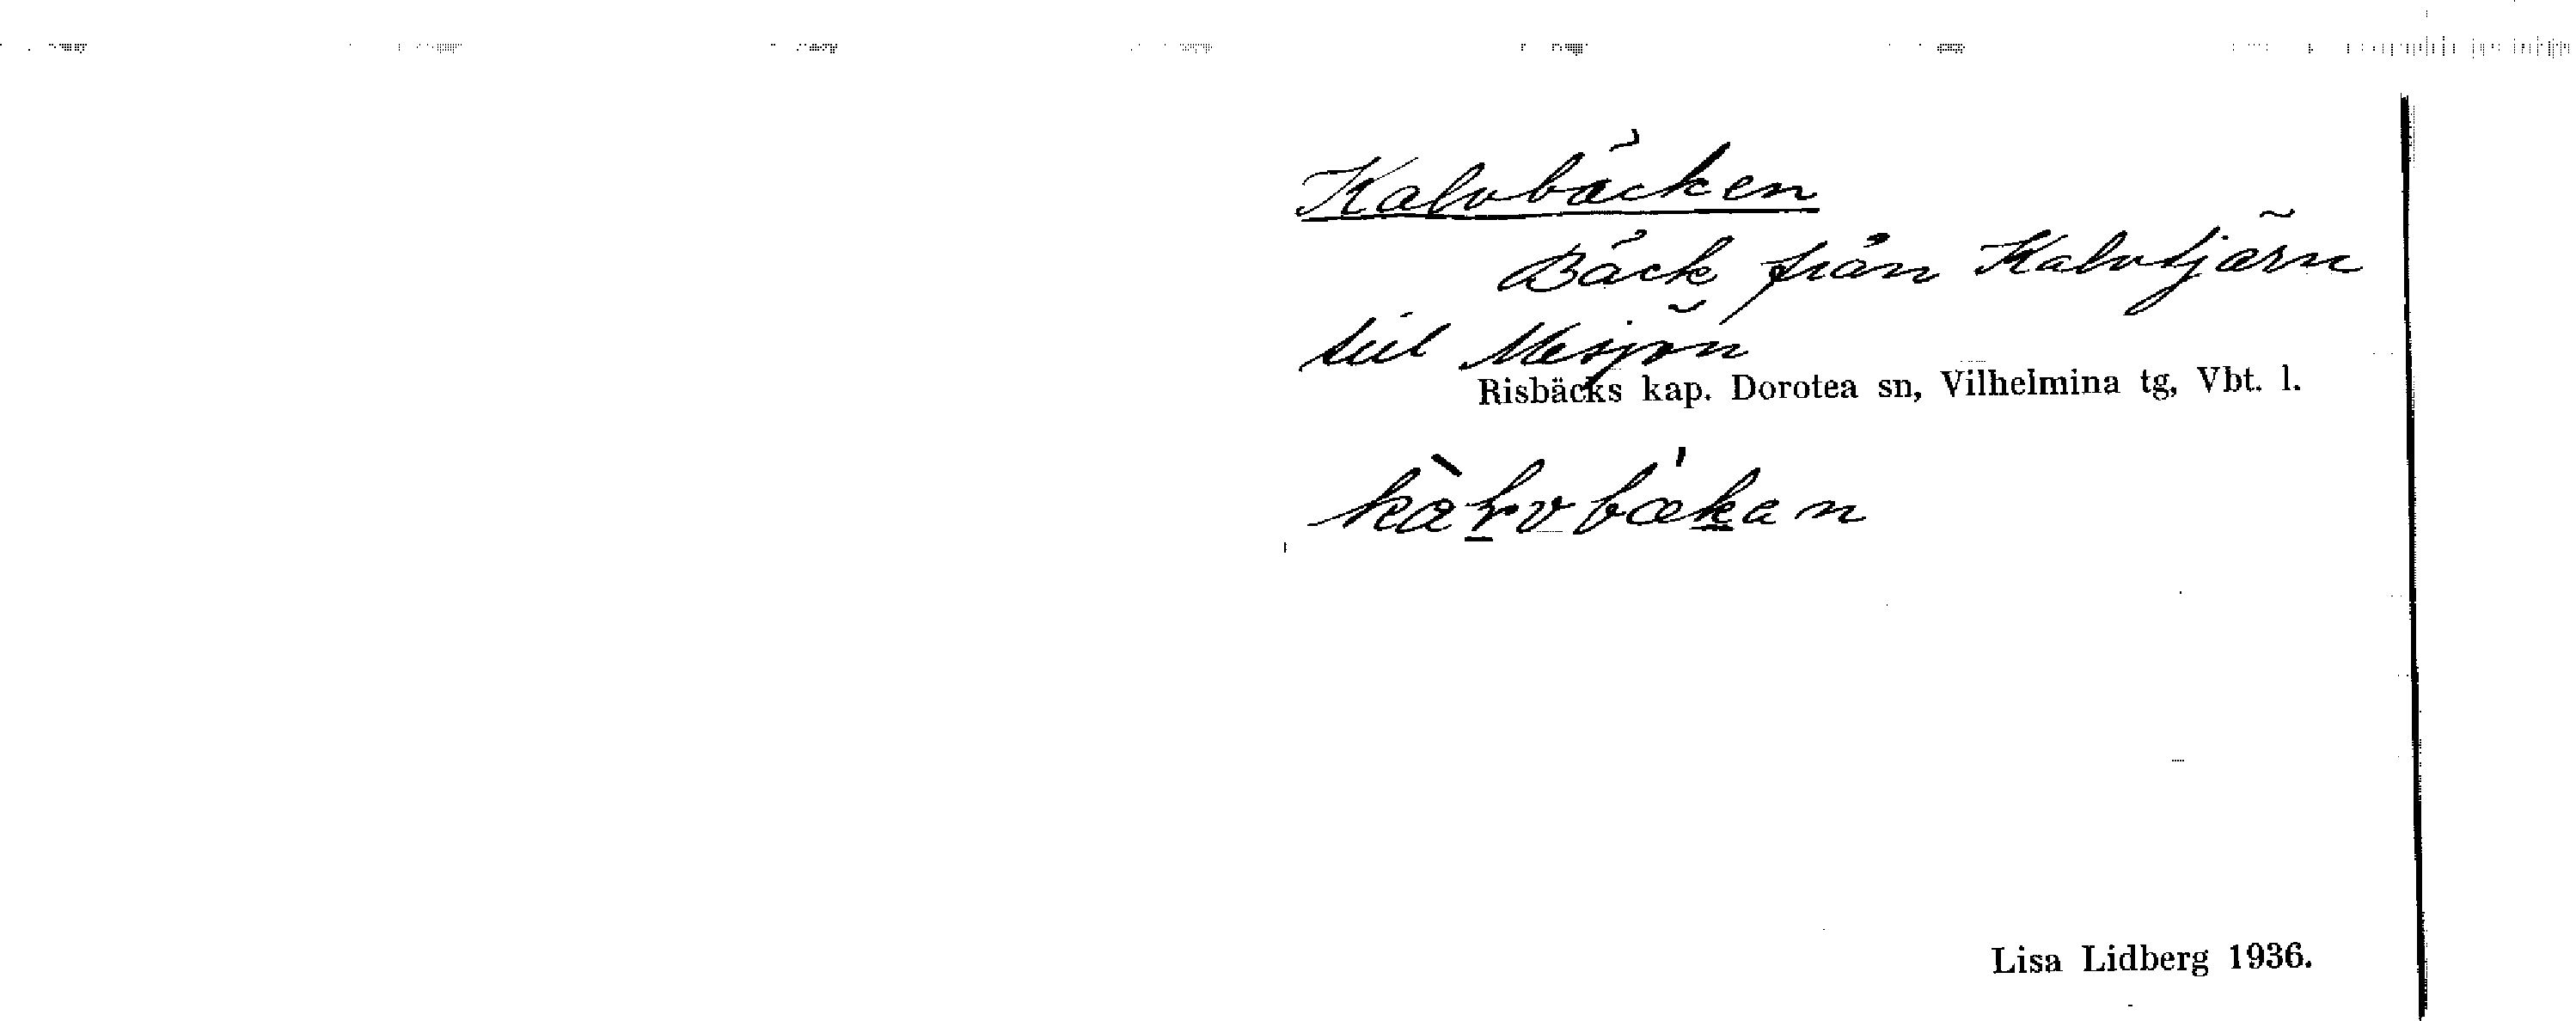 Kalvbäcken
Bäck från Kalvtjärn
till Mesjön
Risbäcks kap. Dorotea sn, Vilhelmina tg, Vbt. l.
Lisa Lidberg 1936.